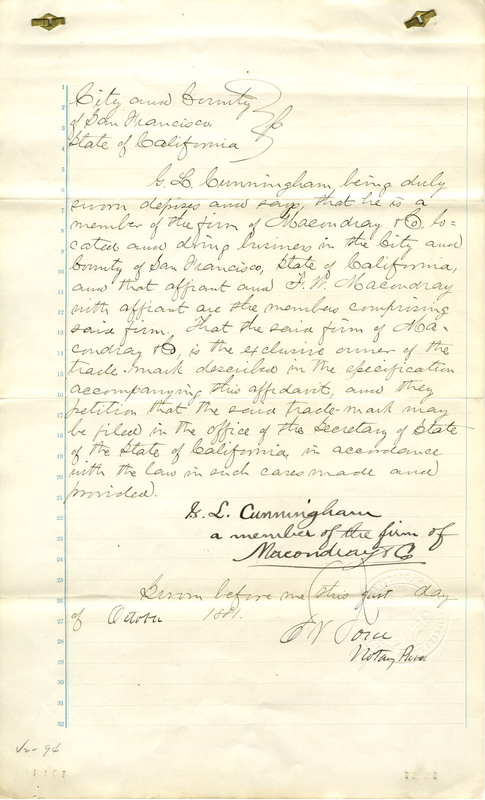 City and County
of San Francisco
State of California
G. L. Cunningham, being duly
sworn deposes and says, that he is a
member of the firm of Macondray & Co, lo=
cated and doing business in the City and
County of San Francisco, State of California,
and that affiant and F. W. Macondray
with affiant are the members comprising
said firm. That the said firm of Ma-
condray & Co, is the exclusive owner of the
trade-mark described in the specification
accompanying this affidavit, and they
petition that the said trade-mark may
be filed in the office of the Secretary of State
of the State of California, in accordance
with the law in such cases made and
provided.
G. L. Cunningham
a member of the firm of
Macondray & Co
Sworn before me this first day
of October 1881.
Notary Public
1
2
3
4
5
6
7
8
9
10
11
12
13
14
15
16
17
18
19
20
21
22
23
24
25
26
27
28
29
30
31
32